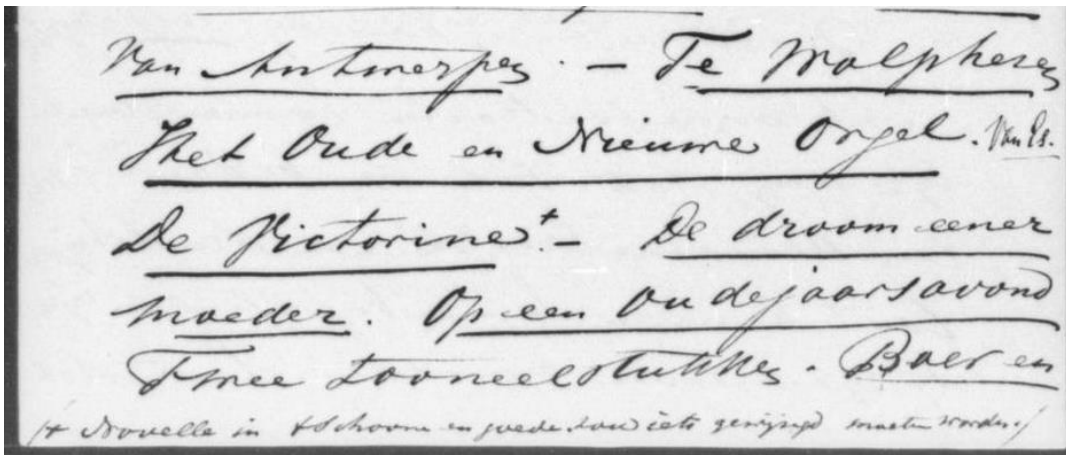 Van Antwerpen. — Te Wolphesen
Het Oude en Nieuwe Orgel. Van Es.
De Victorine+. — De droom eener
moeder. Op een oudejaarsavond
Twee tooneelstukken. Boer en
(+ Novelle in 't Schoone en goede zou iets gewijzigd moeten worden.)